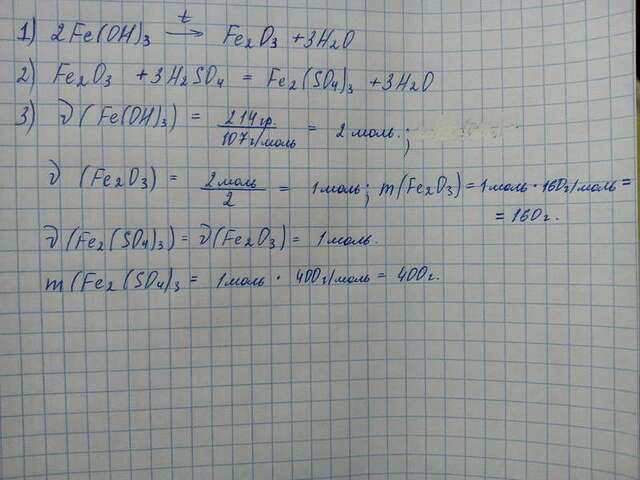 1) 2Fe(OH)₃ →ᵗ Fe₂O₃ + 3H₂O
2) Fe₂O₃ + 3H₂SO₄ = Fe₂(SO₄)₃ + 3H₂O
3) ν(Fe(OH)₃) = 214гр. / 107г/моль = 2 моль.;
ν (Fe₂O₃) = 2моль / 2 = 1моль; m(Fe₂O₃) = 1моль · 160г/моль =
= 160г.
ν(Fe₂(SO₄)₃) = ν(Fe₂O₃) = 1моль.
m(Fe₂(SO₄)₃ = 1моль · 400г/моль = 400г.